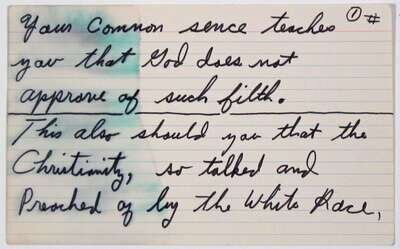 Your Common sence teaches ① #
you that God does not
approve of such filth.
This also should you that the
Christinity, so talked and
Preached of by the White Race,